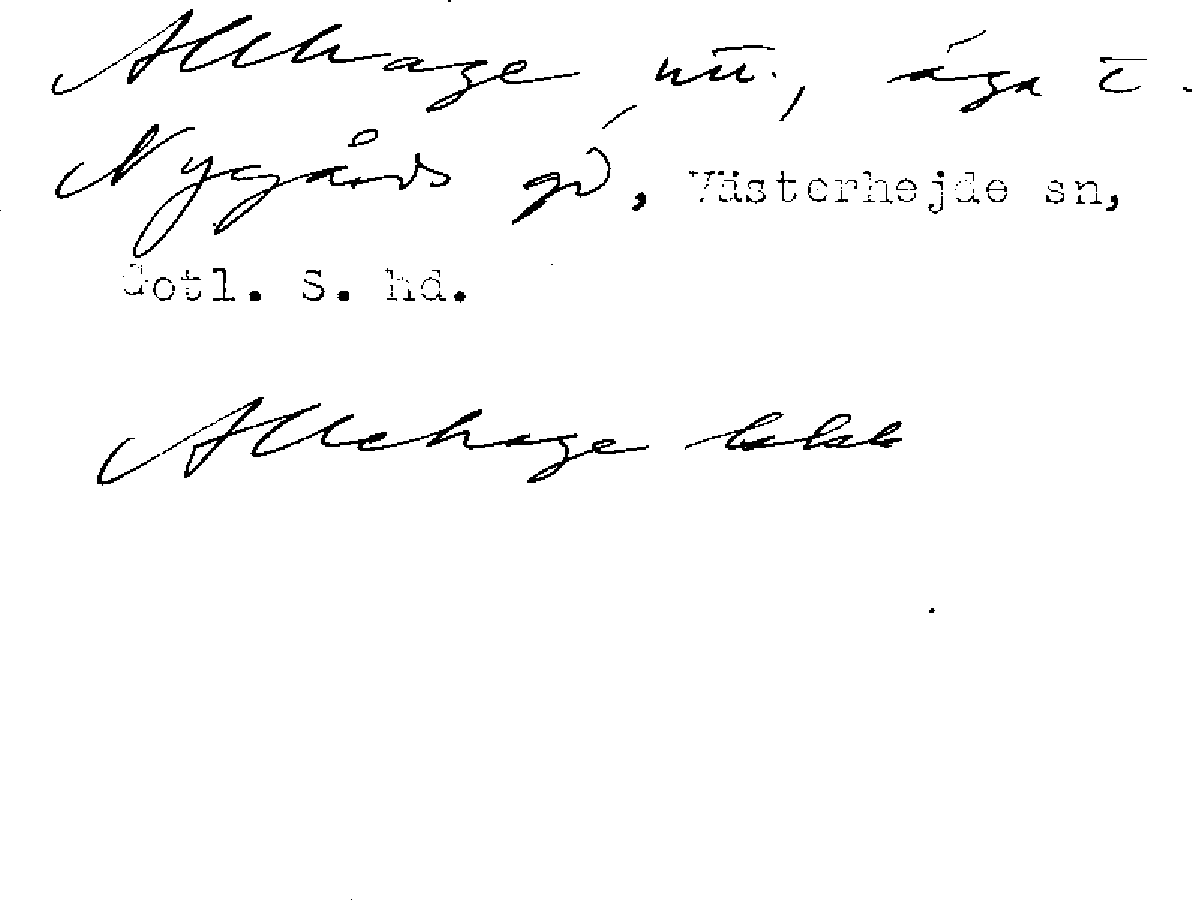 Allhage, nu., äga i
Nygårds gd, Västerhejde sn,
Gotl. S. hd.
Allehage